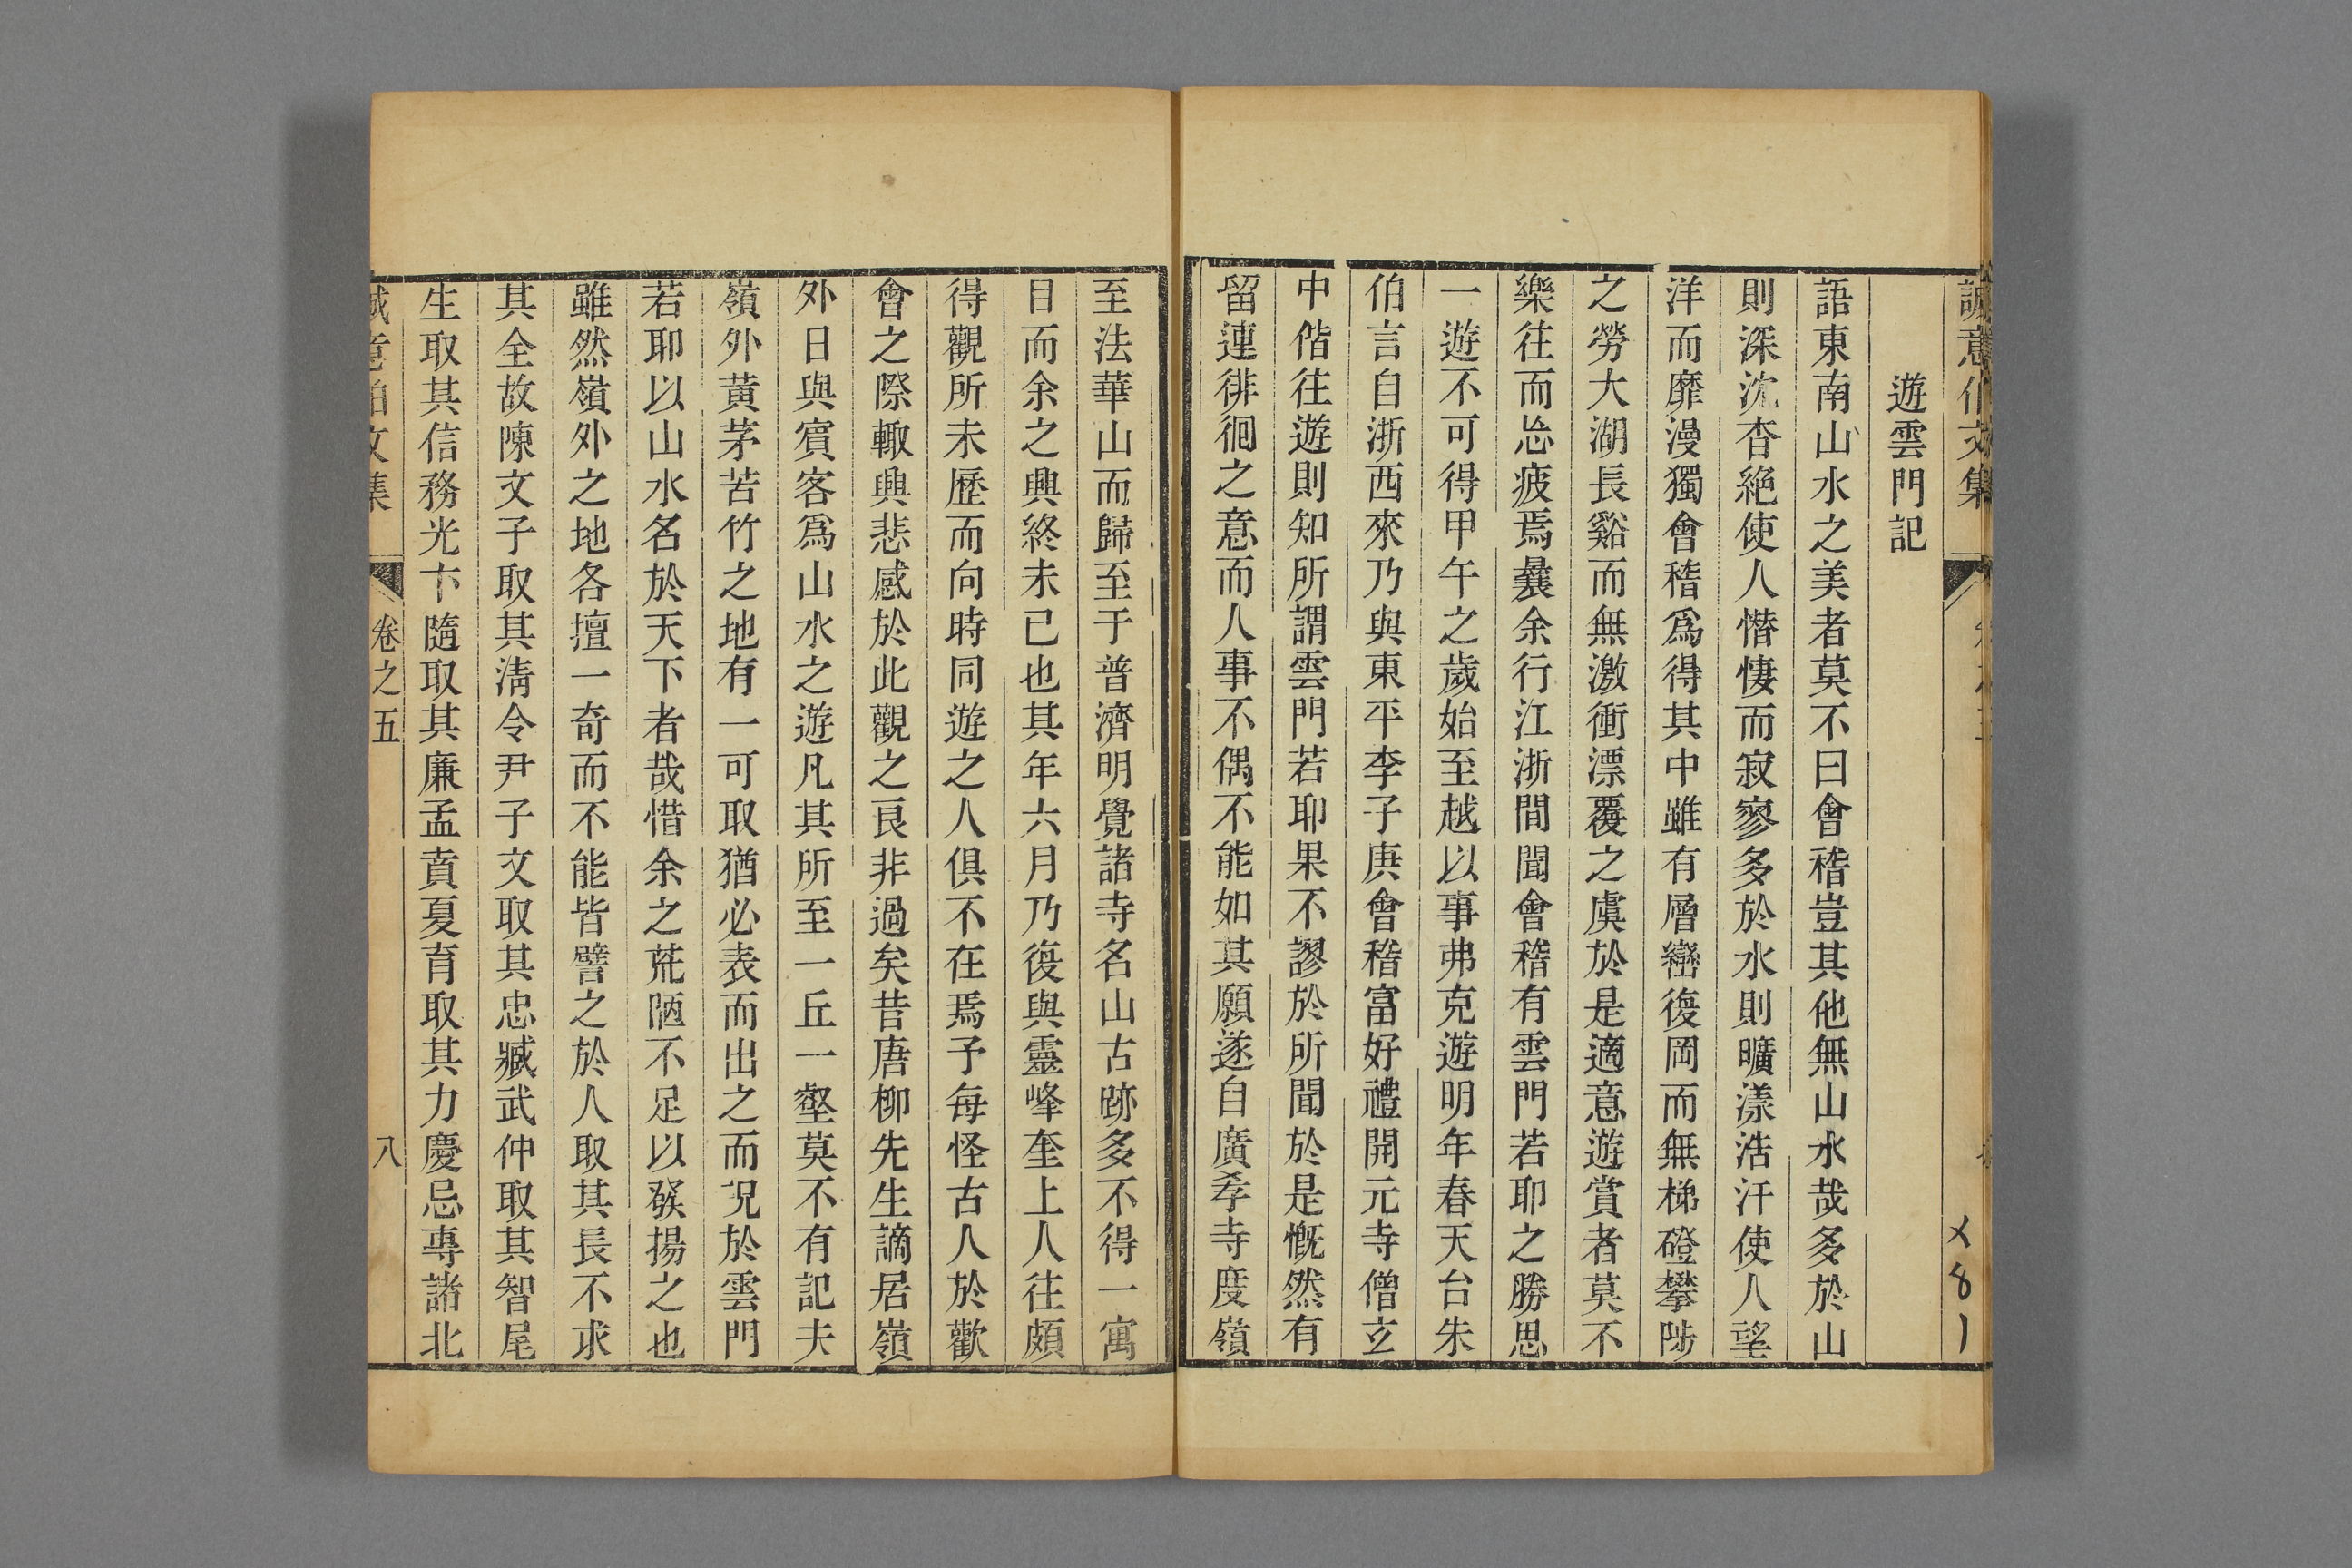 誠意伯文集
遊雲門記
語東南山水之美者莫不曰會稽豈其他無山水哉多於山
則深沈杳絶使人憯悽而寂寥多於水則曠漾浩汗使人望
洋而靡漫獨會稽爲得其中雖有層巒復岡而無梯磴攀陟
之勞大湖長谿而無激衝漂覆之虞於是適意遊賞者莫不
樂往而忘疲焉曩余行江浙間聞會稽有雲門若耶之勝思
一遊不可得甲午之歲始至越以事弗克遊明年春天台朱
伯言自浙西來乃與東平李子庚會稽富好禮開元寺僧玄
中偕往遊則知所謂雲門若耶果不謬於所聞於是慨然有
留連徘徊之意而人事不偶不能如其願遂自廣孝寺度嶺
至法華山而歸至于普濟明覺諸寺名山古跡多不得一寓
目而余之興終未已也其年六月乃復與靈峰奎上人往頗
得觀所未歷而向時同遊之人俱不在焉予每怪古人於歡
會之際輙興悲感於此觀之良非過矣昔唐柳先生謫居嶺
外日與賓客爲山水之遊凡其所至一丘一壑莫不有記夫
嶺外黄茅苦竹之地有一可取猶必表而出之而況於雲門
若耶以山水名於天下者哉惜余之荒陋不足以發揚之也
雖然嶺外之地各擅一奇而不能皆譬之於人取其長不求
其全故陳文子取其淸令尹子文取其忠臧武仲取其智尾
生取其信務光卞隨取其廉孟賁夏育取其力慶忌專諸北
誠意伯文集
卷之五
八